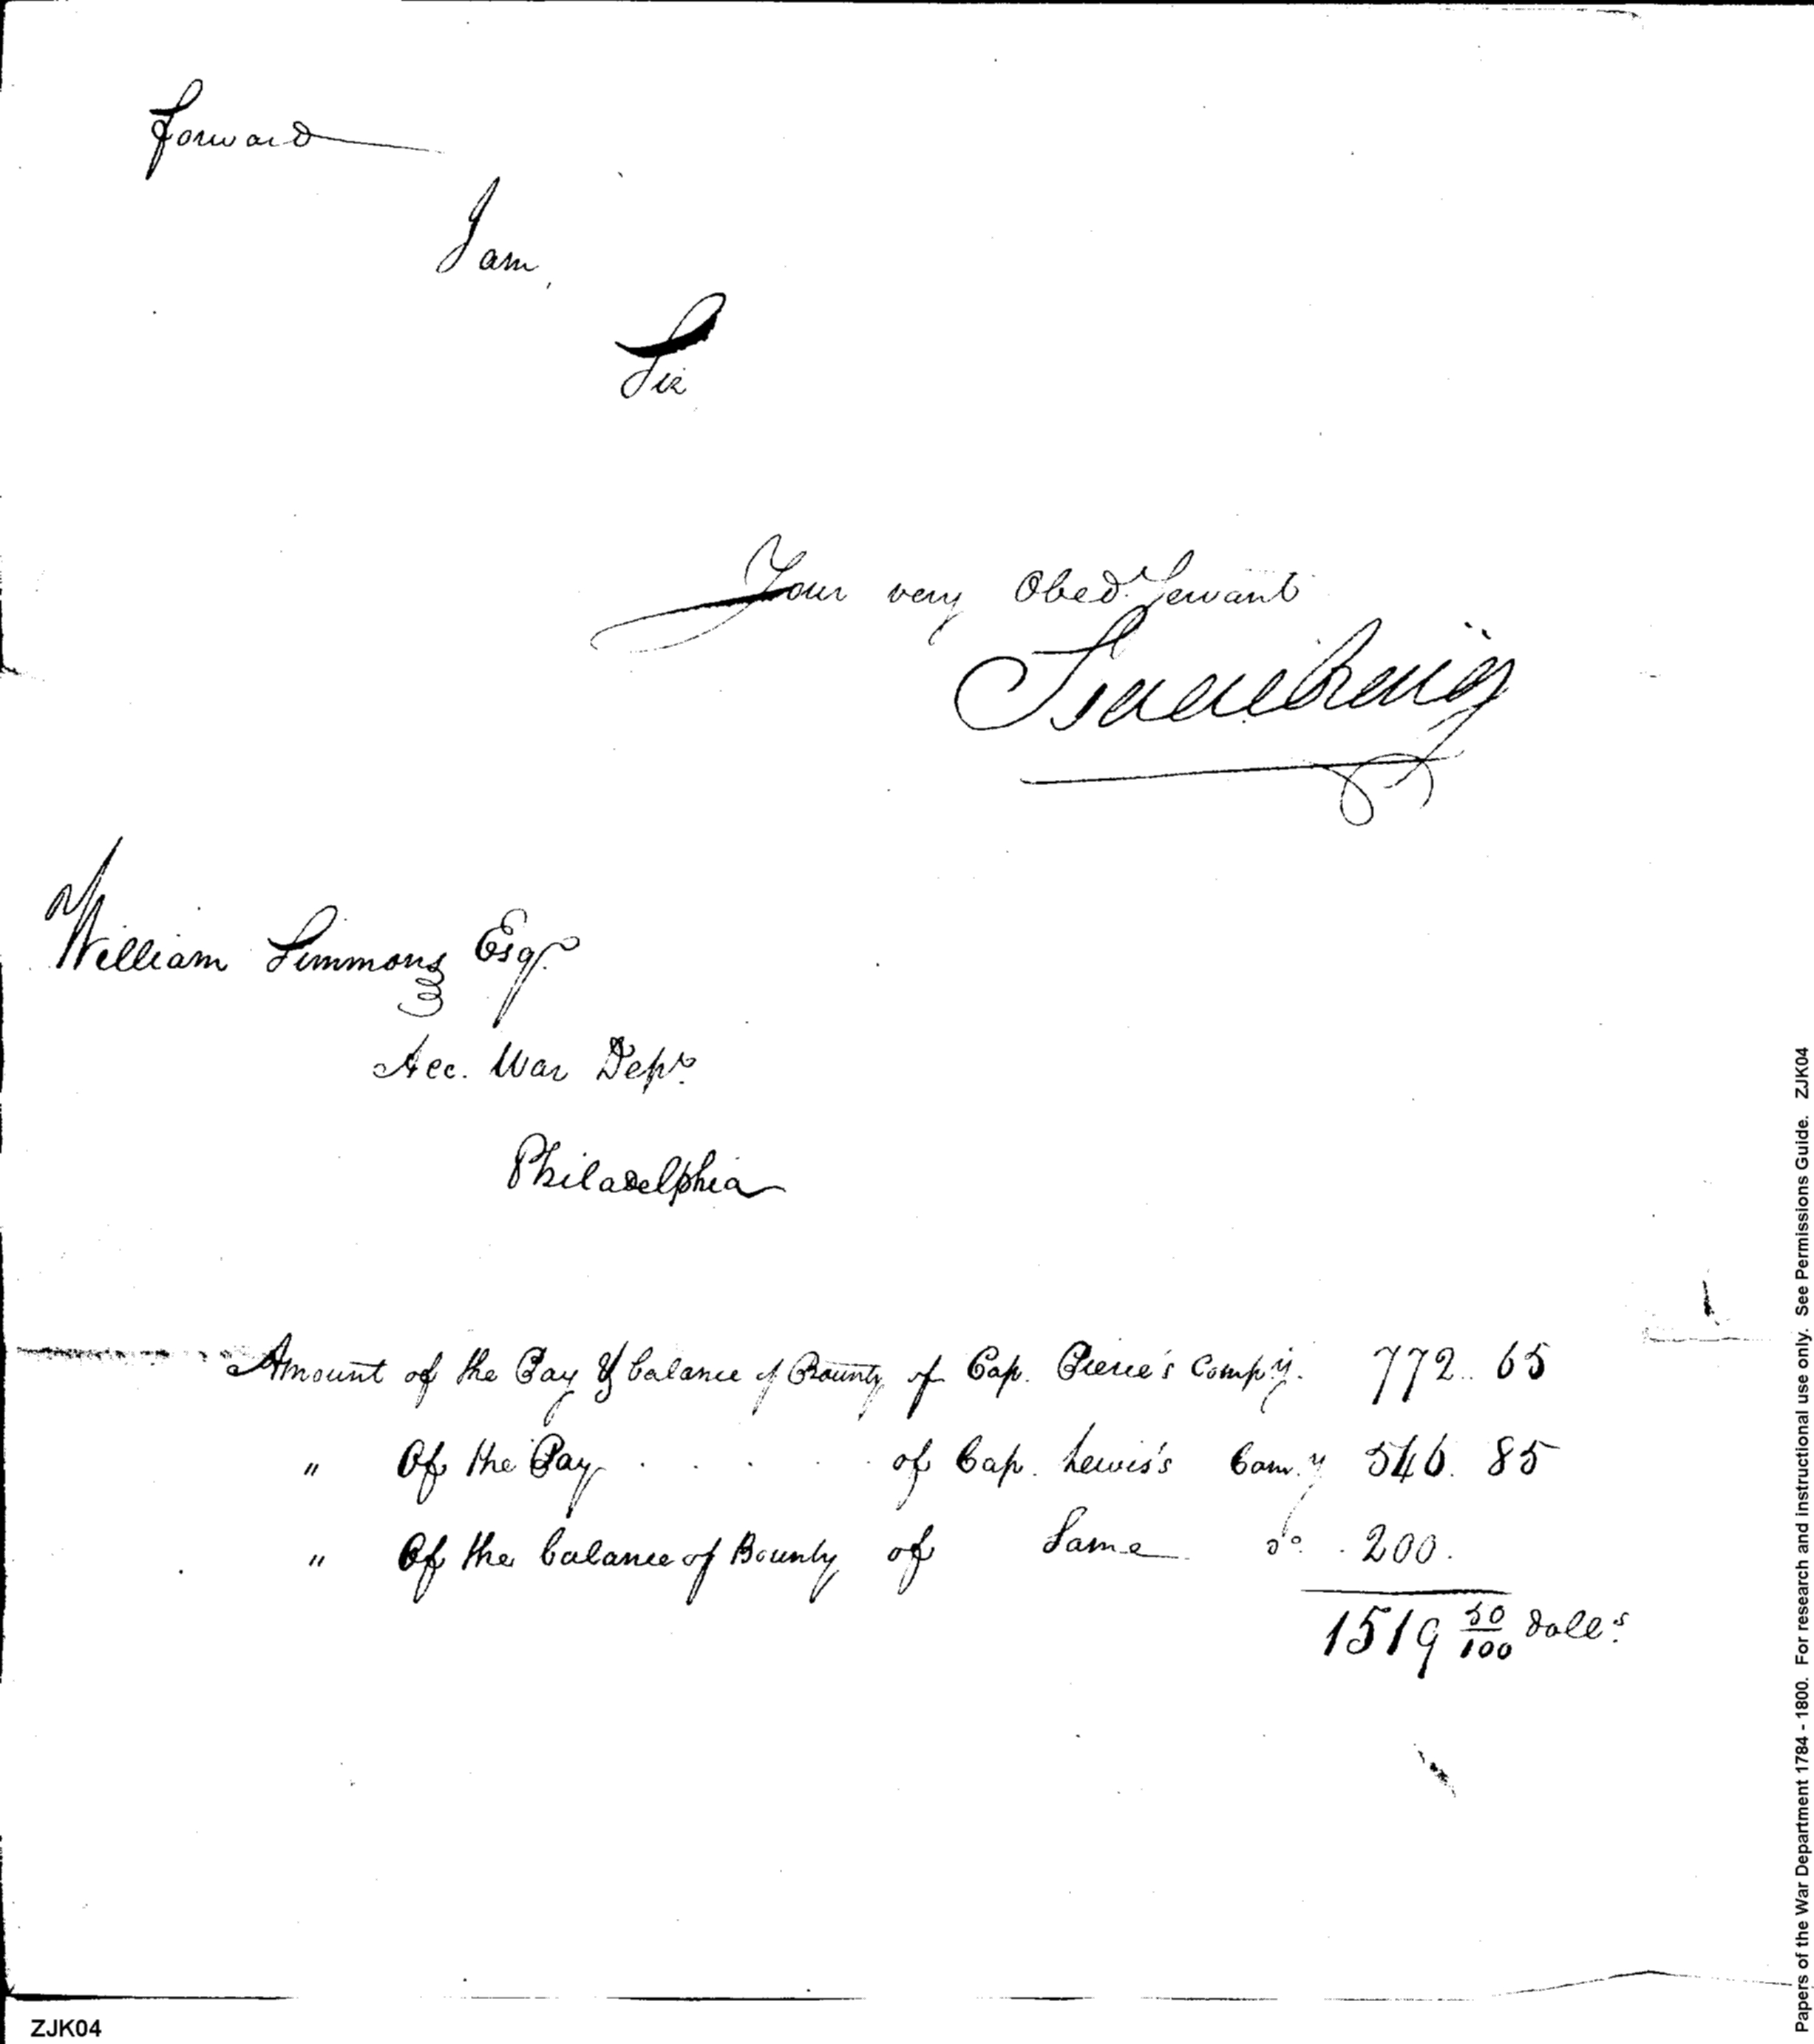 forward
I am,
Sir
Your very Obed.t Servant
Isaac Craig
William Simmons Esqr.
Acc. War Dept.
Philadelphia
Amount of the Pay & balance of Bounty of Cap. Pierce's Comp.y. 772.. 65
" Of the Pay . . . . of Cap. Lewis's Com.y 546. 85
" Of the balance of Bounty of Same do. . 200.
1519 50/100 doll.s
ZJK04
Papers of the War Department 1784 - 1800. For research and instructional use only. See Permissions Guide. ZJK04